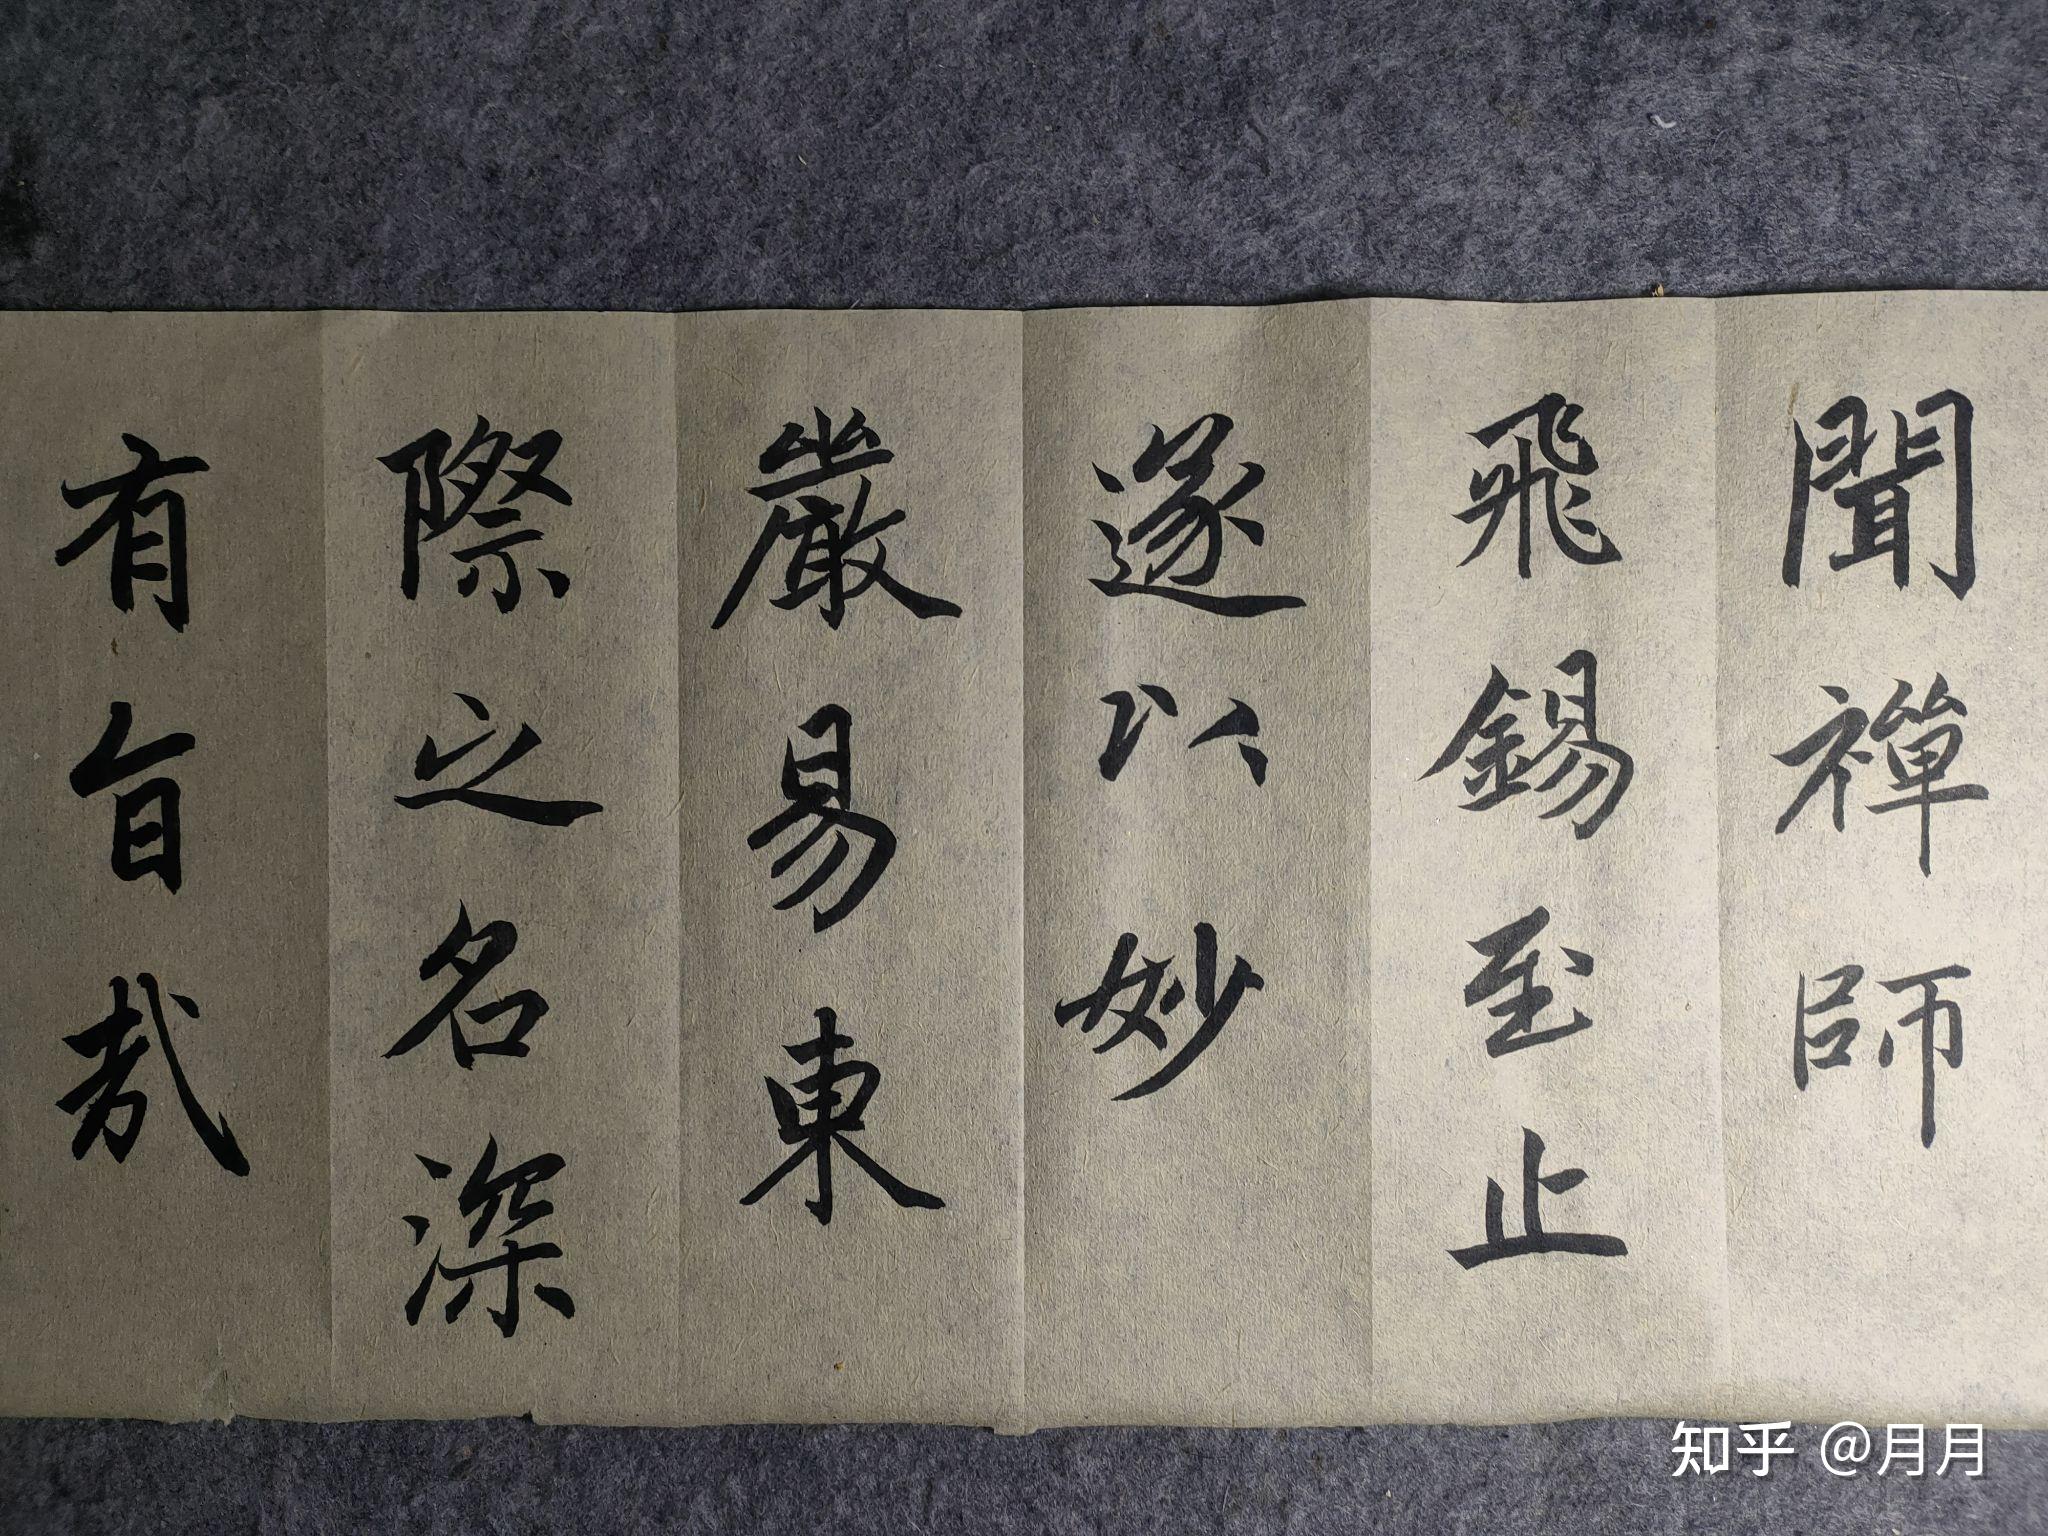 聞禪師
飛錫至止
遂以妙
嚴易東
際之名深
有旨哉
知乎 @月月